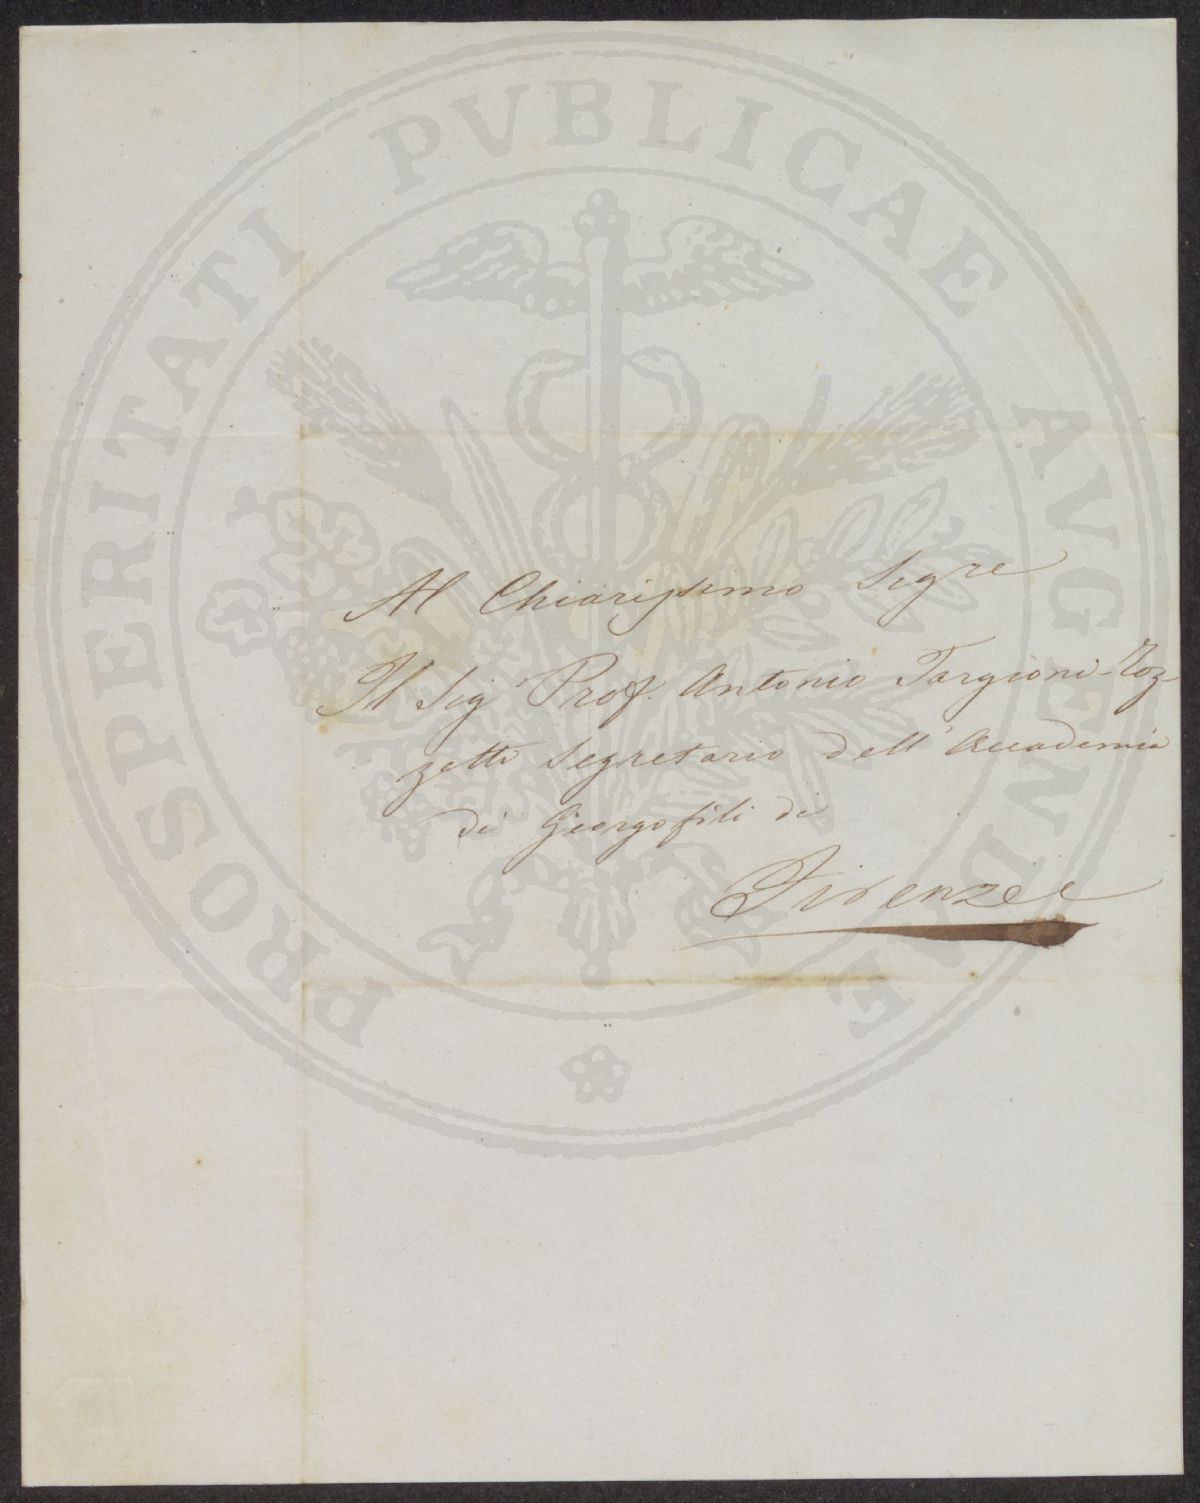 PROSPERITATI PVBLICAE AVGENDAE
Al Chiarissimo Sigre
Il Sig Prof. Antonio Targioni-Toz-
zetti Segretario dell' Accademia
di Georgofili di
Firenze